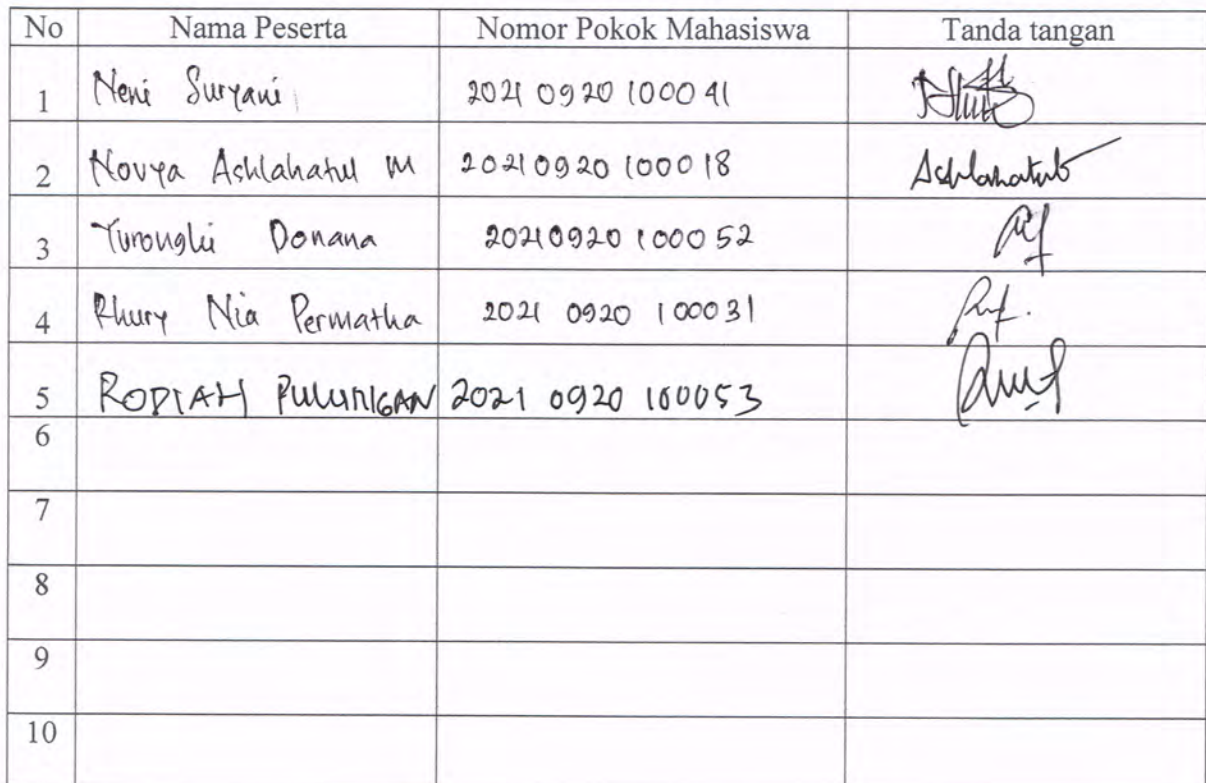 No Nama Peserta Nomor Pokok Mahasiswa Tanda tangan
1 Neni Suryani 20210920100041
2 Novya Ashlahatul M 20210920100018 Ashlahatul
3 Donana 20210920100052
4 Rhury Nia Permatha 2021 0920 100031
5 RODIAH PULUNGAN 2021 0920 100053
6
7
8
9
10